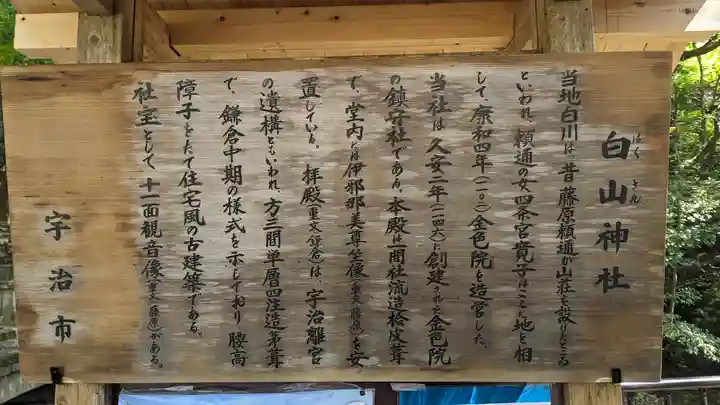 白山神社
はく さん
当地白川は、昔藤原頼通が山荘を設けたところ
といわれ、頼通の女四条宮寛子はこの地を相
して、康和四年(一一〇二)金色院を造営した。
当社は、久安二年(一一四六)に創建された金色院
の鎮守社である。本殿は一間社流造桧皮葺
で、堂内には伊邪那美尊坐像(重文 藤原)を安
置している。拝殿(重文 鎌倉)は、宇治離宮
の遺構ともいわれ、方三間単層四注造茅葺
で、鎌倉中期の様式を示しており、腰高
障子をたて住宅風の古建築である。
社宝として、十一面観音像(重文 藤原)がある。
宇治市